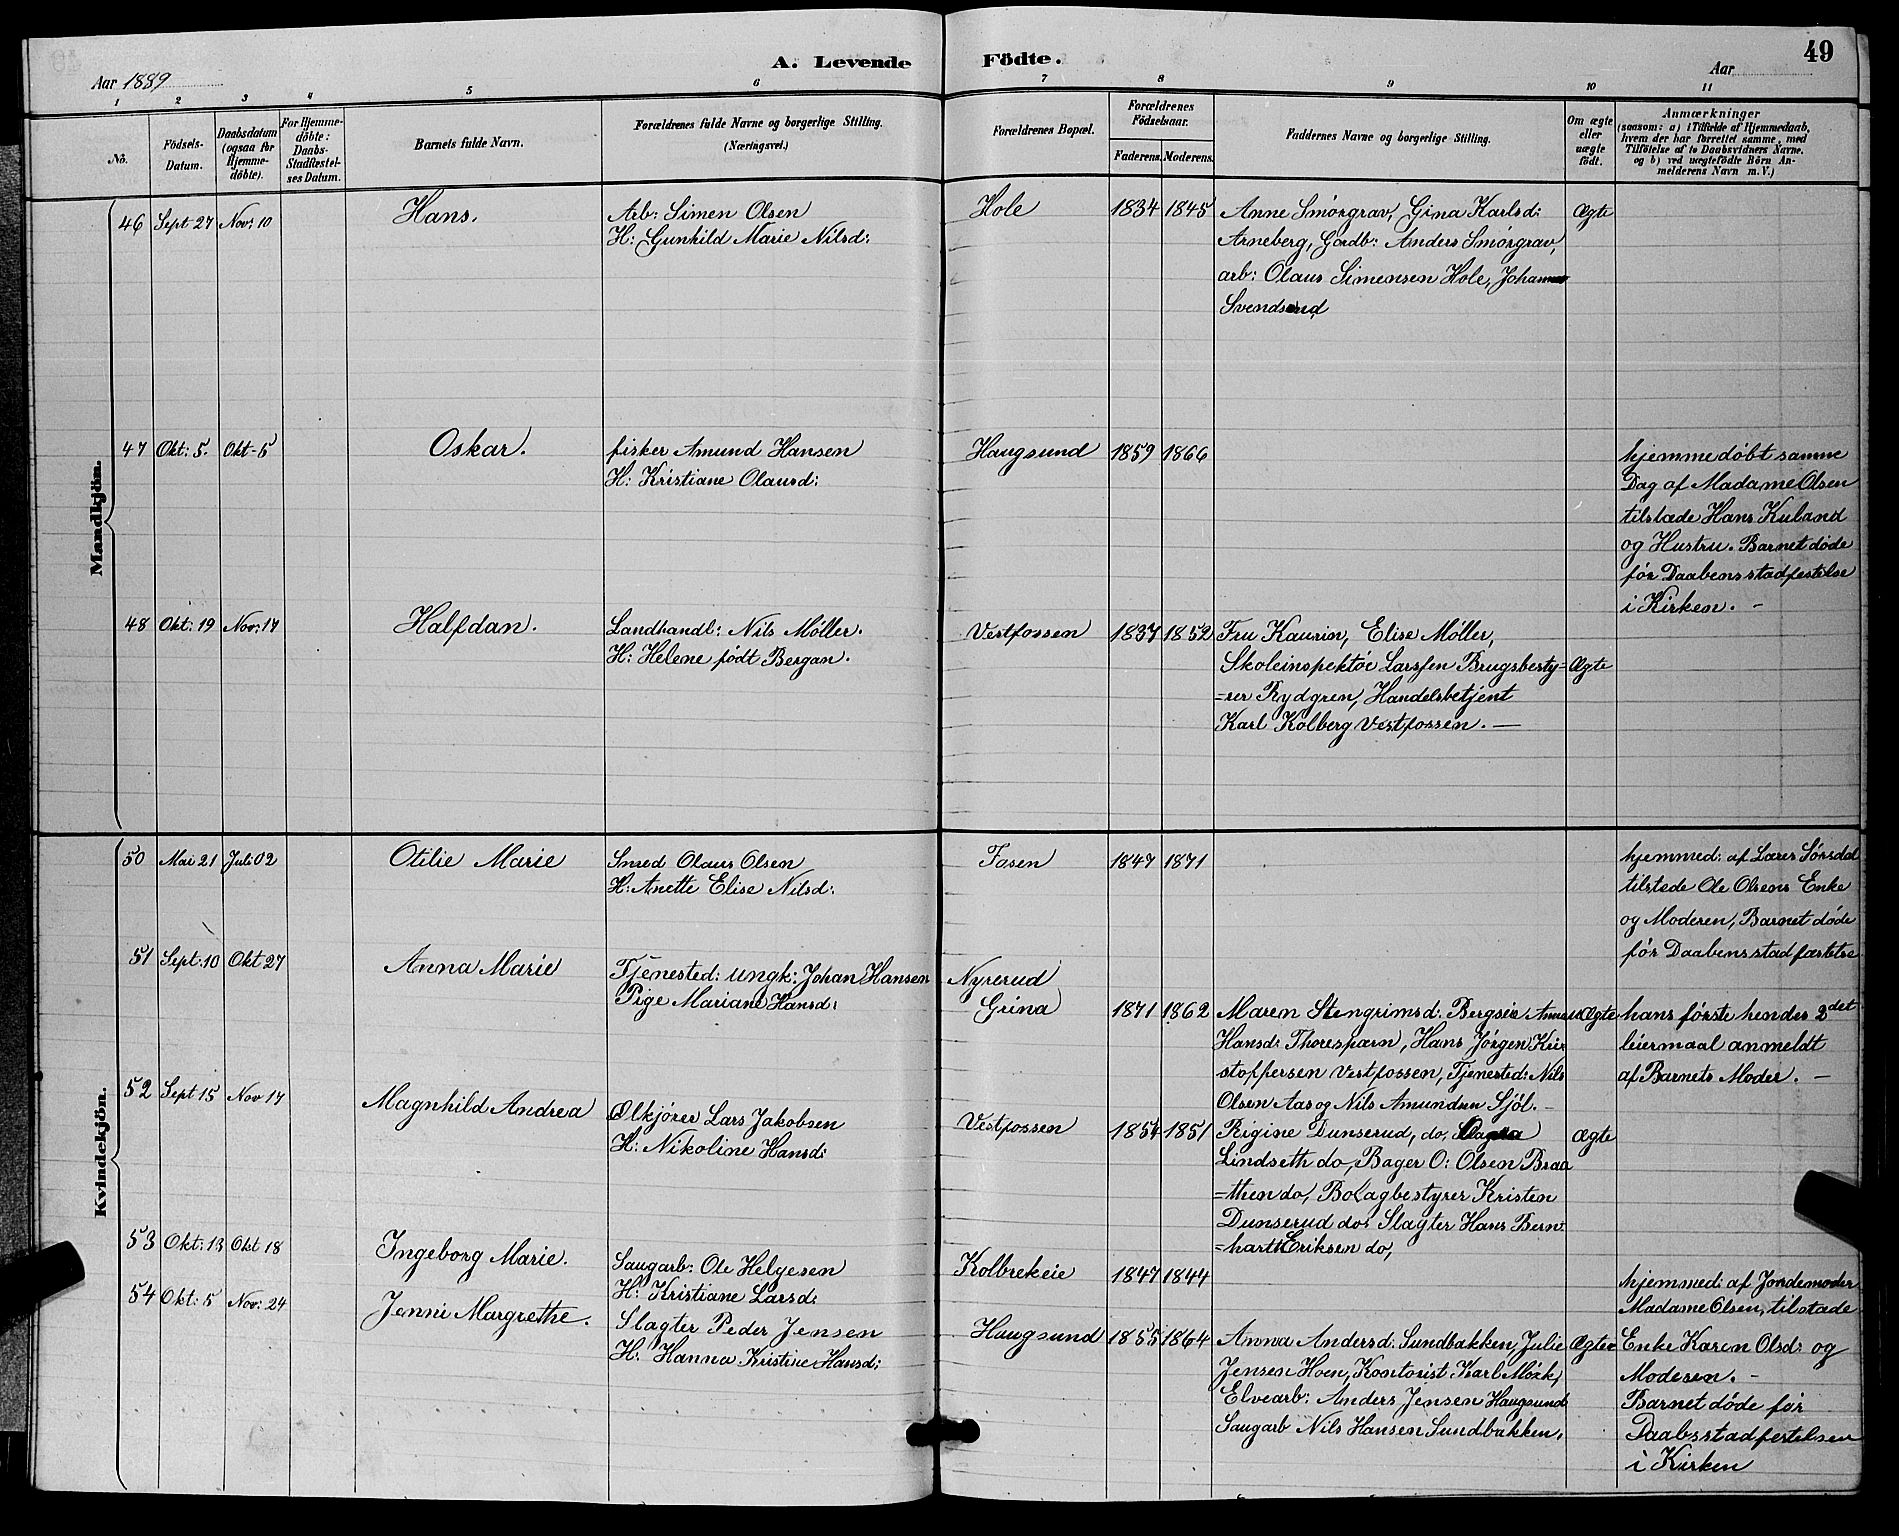 A. Levende Födte.
49
Aar 1889
Aar
1 2 3 4 5 6 7 8 9 10 11
No.
Födsels-
Datum.
Daabsdatum
(ogsaa for
Hjemme-
döbte).
For Hjemme-
döbte:
Daabs-
Stadfæstel-
ses Datum.
Barnets fulde Navn.
Forældrenes fulde Navne og borgerlige Stilling.
(Næringsvei.)
Forældrenes Bopæl.
Forældrenes
Födselsaar.
Faderens. Moderens.
Faddernes Navne og borgerlige Stilling.
Om ægte
eller
uægte
födt.
Anmærkninger
(saasom: a) i Tilfælde af Hjemmedaab,
hvem der har forrettet samme, med
Tilföielse af to Daabsvidners Navne.
og b) ved uægtefödte Börn An-
melderens Navn m. V.)
Mandkjön.
46 Sept 27 Nov: 10 Hans.
Arb: Simen Olsen
H: Gunhild Marie Nilsd:
Hole 1834 1845
Anne Smørgrav, Gina Karlsd:
Arneberg, Gordb: Anders Smørgrav,
arb: Olaus Simensen Hole, Johannes
Svendsrud
Ægte
47 Okt: 5. Okt-5 Oskar.
fisker Amund Hansen
H: Kristiane Olausd:
Haugsund 1859 1866
hjemmedøbt samme
Dag af Madame Olsen
tilstæde Hans Kuland
og Hustru. Barnet døde
før Daabens stadfestelse
i Kirken. -
48 Okt: 19 Nov: 17 Halfdan.
Landhandl: Nils Møller.
H: Helene født Bergan.
Vestfossen 1837 1852
Fru Kaurin, Elise Møller,
Skoleinspektør Larssen Brugsbesty=
=rer Rydgren, Handelsbetjent
Karl Kolberg Vestfossen. -
Ægte
Kvindekjön.
50 Mai 21 Juli 02 Otilie Marie
Smed Olaus Olsen
H: Anette Elise Nilsd:
Fosen 1847 1871
hjemmed: af Lærer Sørsdal
tilstede Ole Olsens Enke
og Moderen, Barnet døde
før Daabens stadfæstelse
51 Sept: 10 Okt 27 Anna Marie
Tjenested: ungk: Johan Hansen
Pige Mariane Hansd:
Nyrerud
Grina 1871 1862
Maren Stengrimsd: Bergsei Anne
Hansd: Thorespærn, Hans Jørgen Kri=
stoffersen Vestfossen, Tjenested: Nils
Olsen Aas og Nils Amundsen Sjöl. -
uÆgte
hans første hendes 2det
leiermaal anmeldt
af Barnets Moder. -
52 Sept 15 Nov 17 Magnhild Andrea
Ølkjører Lars Jakobsen
H: Nikoline Hansd:
Vestfossen 1854 1851
Rigine Dunserud, do,
Lindseth do, Bager O: Olsen Braa
=then do, Bolagbestyrer Kristen
Dunserud do: Slagter Hans Bern
=hartt Eriksen do,
Ægte
53 Okt: 13 Okt 18 Ingeborg Marie.
Saugarb: Ole Helgesen
H: Kristiane Larsd:
Kolbrekeie 1847 1844
hjemmed: af Jordemoder
Madame Olsen, tilstæde
Enke Karen Olsd: og
Moderen. -
Barnet døde før
Daabsstadfestelsen
i Kirken
54 Okt: 5 Nov: 24 Jenni Margrethe.
Slagter Peder Jensen
H: Hanna Kristine Hansd:
Haugsund 1855 1864
Anna Andersd: Sundbakken, Julie
Jensen Hoen, Kontorist Karl Mork,
Elvearb: Anders Jensen Haugsund
Saugarb Nils Hansen Sundbakken.
Ægte